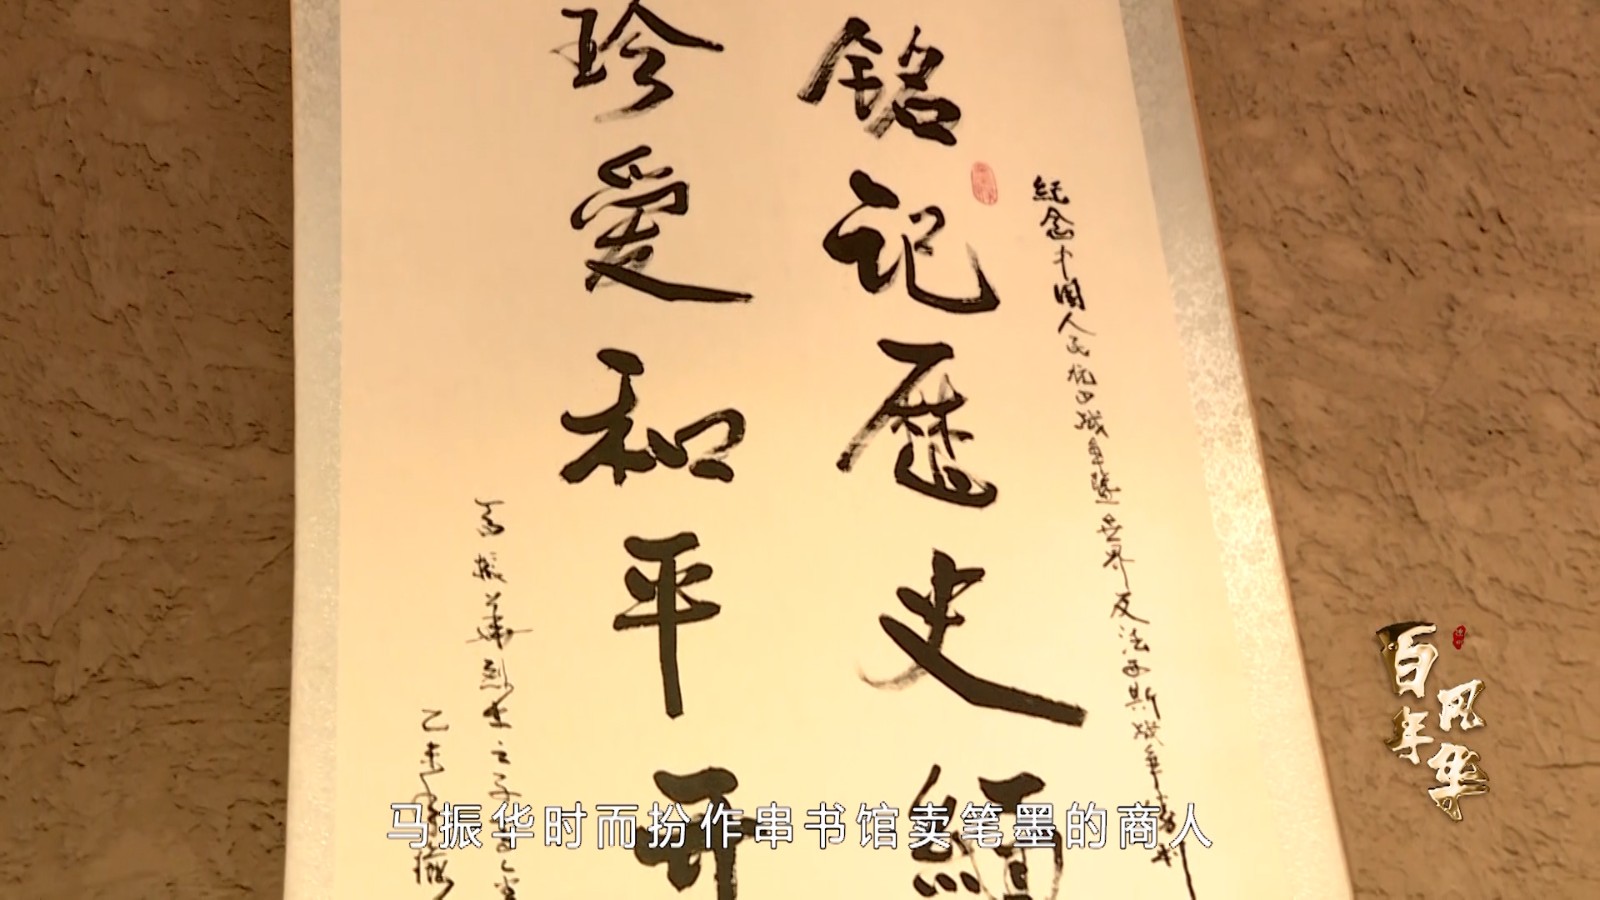 铭记历史缅
珍爱和平开
纪念中国人民抗日战争暨世界反法西斯战争胜利
马振华烈士之子
乙未
马振华时而扮作串书馆卖笔墨的商人
百年风华